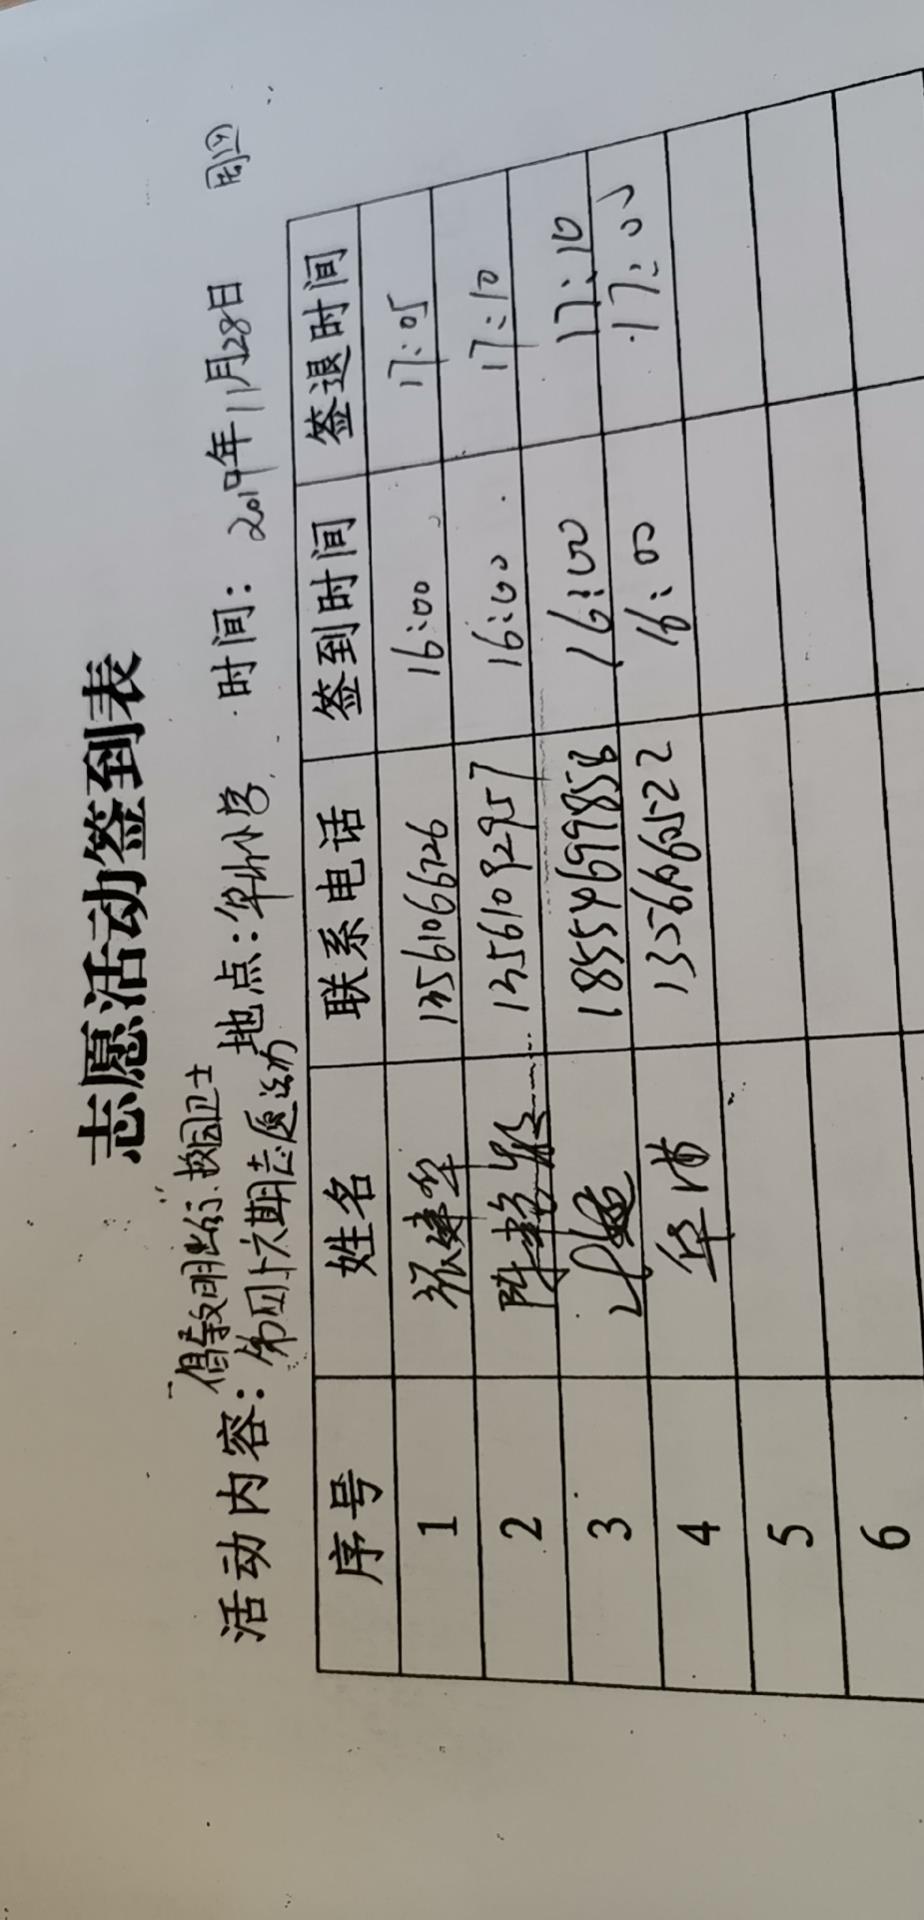 志愿活动签到表
倡导文明出行、校园卫士
活动内容: 第四十六期志愿活动 地点: 华小学 时间: 2019年11月28日 周四
序号 姓名 联系电话 签到时间 签退时间
1 张建华 13561066726 16:00 17:05
2 陈 13561092957 16:00 17:10
3 18554699858 16:00 17:10
4 华 13566605522 16:00 17:05
5
6